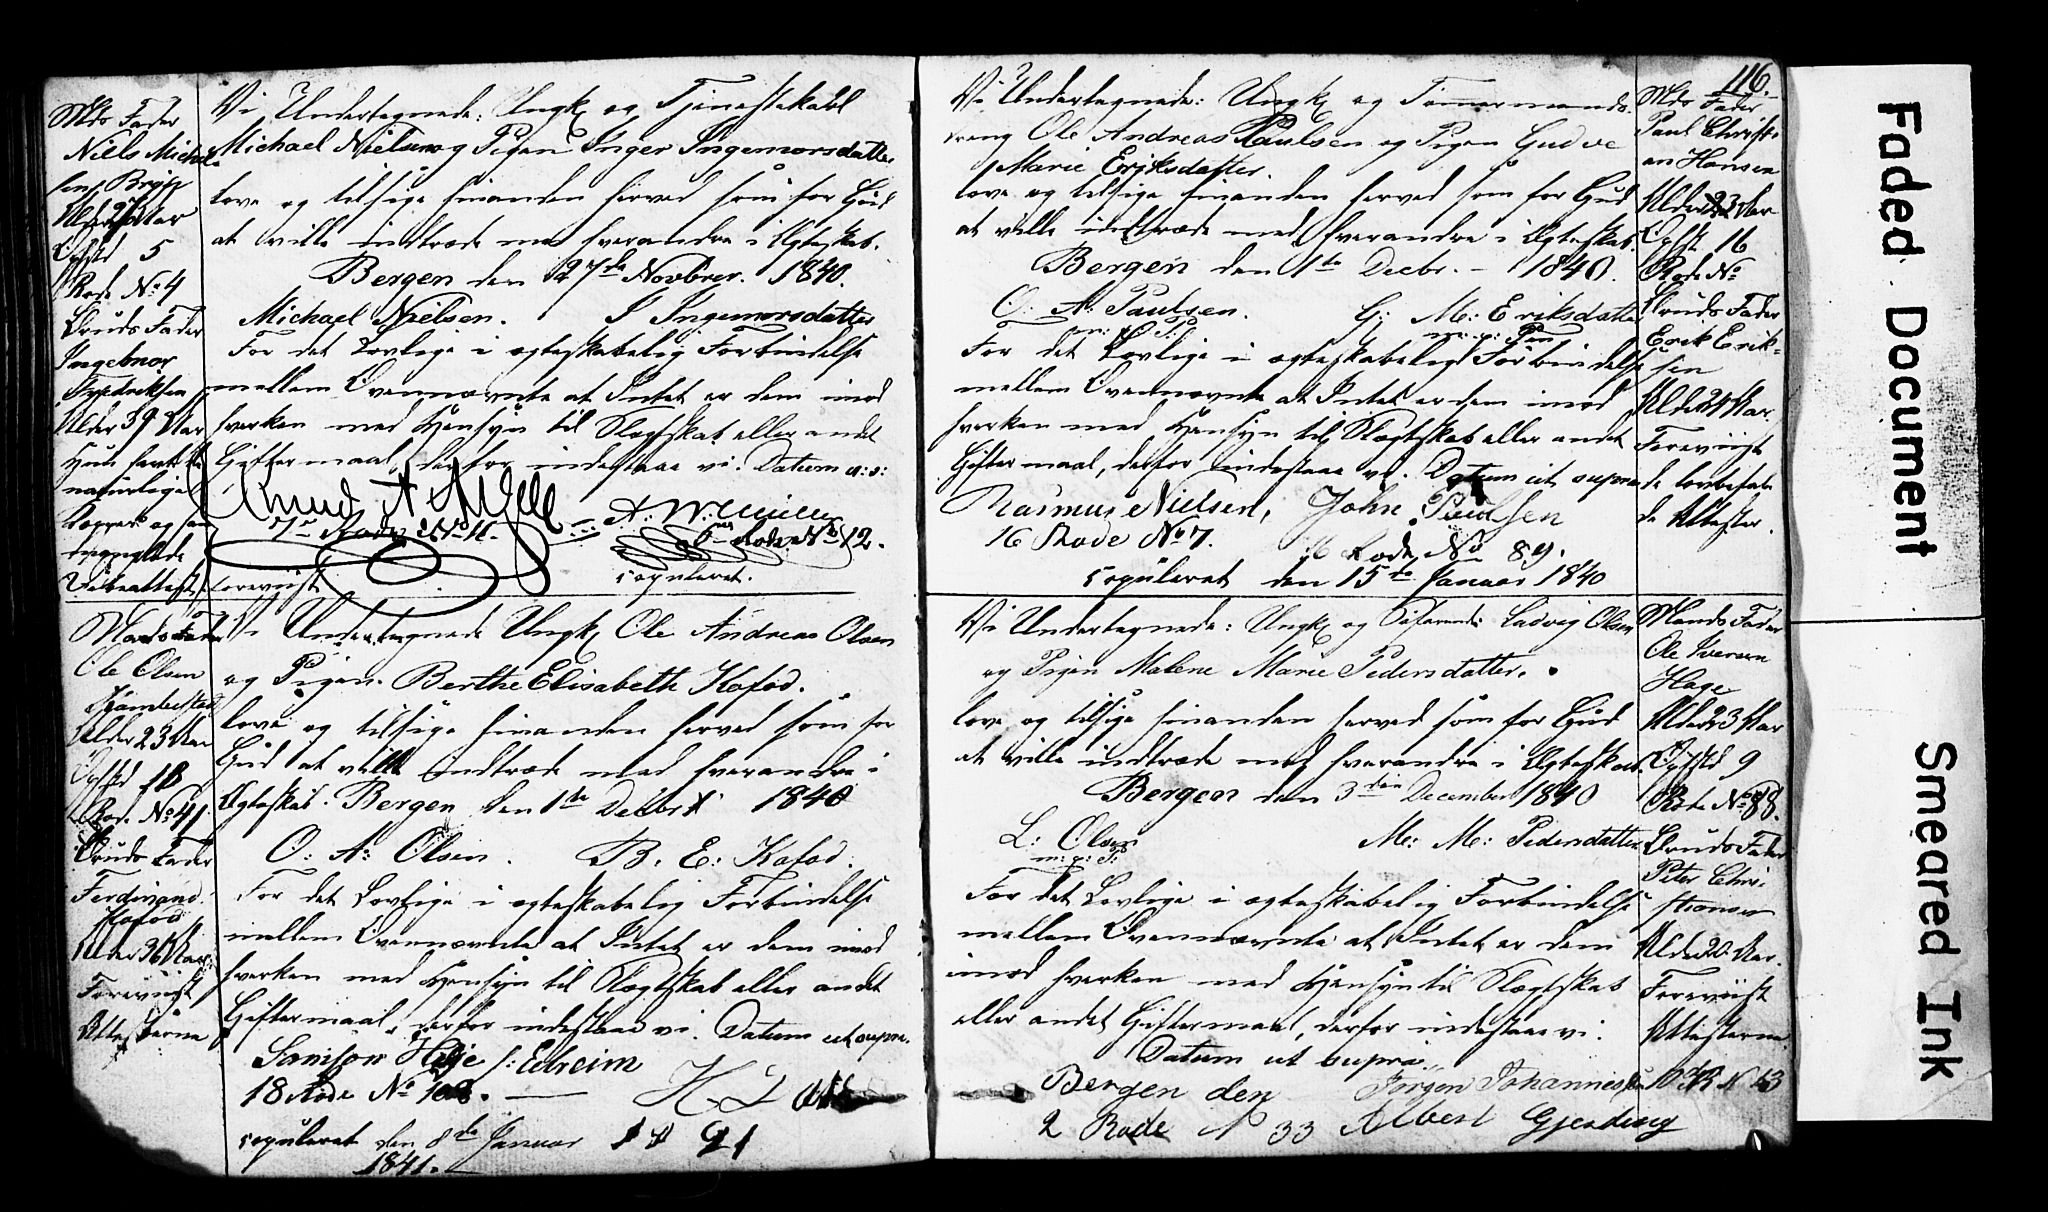 Mds Fader
Niels Michael
sen Brøst
Alder 27 Aar
Opfstd 5
Rode No 4
Bruds Fader
Ingebrior
Fredriksen
Alder 39 Aar
naturlige
Kopper og
Vi Undertegnede: Ungk og Tjenestekarl
Michael Nielsen og Pigen Inger Ingemorsdatter
love og tilsige hinanden herved som for Gud
at ville indtræde med hverandre i Ægteskab.
Bergen den 27de Novbrer. 1840.
Michael Nielsen. I Ingemorsdatter
For det Lovlige i ægteskabelig Forbindelse
mellem Ovennævnte at Intet er dem imod
hverken med Hensyn til Slægtskab eller andet
Giftermaal, derfor indestaae vi. Datum u: s:
Knud A
7de Rode No
Rode No 12.
copuleret.
foreviist
Mands Fader
Ole Olsen
Alder 23 Aar
Opfstd 18
Rode No 41
Bruds Fader
Ferdinand
Kofod
Alder 36 Aar
Foreviist
Attesterne
Vi Undertegnede Ungk Ole Andreas Olsen
og Pigen Berthe Elisabeth Kofod.
love og tilsige hinanden herved som for
Gud at ville indtræde med hverandre i
Ægteskab. Bergen den 1te Decbr 1840
O: A: Olsen. B. E: Kofod.
For det Lovlige i ægteskabelig Forbindelse
mellem Ovennævnte at Intet er dem imod
hverken med Hensyn til Slægtskab eller andet
Giftermaal, derfor indestaae vi. Datum ut supra.
Samson Helje s: Edreim
18 Rode No 108.
copuleret den 8de Januar
1841.
116.
Vi Undertegnede: Ungk og Tømmermands
dreng Ole Andreas Paulsen og Pigen Gudve
Marie Eriksdatter.
love og tilsige hinanden herved som for Gud
at ville indtræde med hverandre i Ægteskab.
Bergen den 1te Decbr. 1840.
O. A: Paulsen. G: M: Eriksdatter
m: p: P: m: p: Pen
For det Lovlige i ægteskabelig Forbindelse
mellem Ovennævnte at Intet er dem imod
hverken med Hensyn til Slægtskab eller andet
Giftermaal, derfor indestaae vi. Datum ut supra
Rasmus Nielsen, John Paulsen
16 Rode No 7. 16 Rode No 89.
copuleret den 15de Januar 1840
Mds Fader
Paul Christi
an Hansen
Alder 23 Aar
Opfst 16
Rode No
Bruds Fader
Erik Erik-
sen
Alder 24 Aar.
Foreviist
de lovbefale
de Attester.
Vi Undertegnede: Ungk og Søfarende Ludvig Olsen
og Pigen Malene Marie Pedersdatter.
love og tilsige hinanden herved som for Gud
at ville indtræde med hverandre i Ægteskab.
Bergen den 3die December 1840
L: Olsen M: M: Pedersdatter
m: p: P:
For det Lovlige i ægteskabelig Forbindelse
mellem Ovennævnte at Intet er dem
imod hverken med Hensyn til Slægtskab
eller andet Giftermaal, derfor indestaae vi.
Datum ut supra
Bergen den Jørgen Johannes
2 Rode N 33 Albert Gjerding
Mands Fader
Ole Iversen
Hage
Alder 23 Aar
Opfstd 9
Rode No 88.
Bruds Fader
Peter Chri-
stiansen
Alder 20 Aar.
Foreviist
Attesterne
Faded Document
Smeared Ink